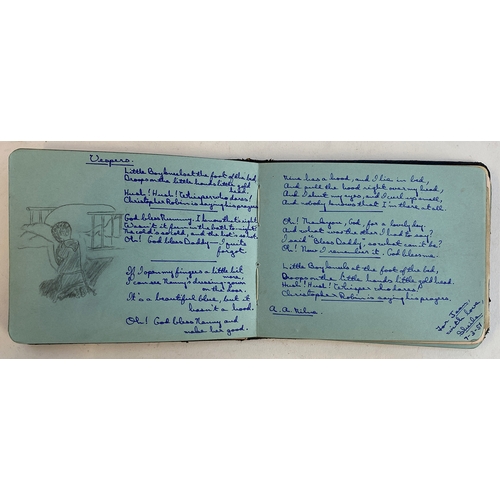 Vespers.
Little Boy kneels at the foot of the bed,
Droops on the little hands little gold
head.
Hush! Hush! Whisper who dares!
Christopher Robin is saying his prayers.
God bless Mummy. I know that's right.
Wasn't it fun in the bath to-night?
The cold's so cold, and the hot's so hot.
Oh! God bless Daddy - I quite
forgot.
If I open my fingers a little bit
more,
I can see Nanny's dressing-gown
on the door.
It's a beautiful blue, but it
hasn't a hood.
Oh! God bless Nanny and
make her good.
Mine has a hood, and I lie in bed,
And pull the hood right over my head,
And I shut my eyes, and I curl up small,
And nobody knows that I'm there at all.
Oh! Thank you, God, for a lovely day.
And what was the other I had to say?
I said "Bless Daddy", so what can it be?
Oh! Now I remember it. God bless me.
Little Boy kneels at the foot of the bed,
Droops on the little hands little gold head.
Hush! Hush! Whisper who dares!
Christopher Robin is saying his prayers.
A.A. Milne.
For Jean
with love
Sheila